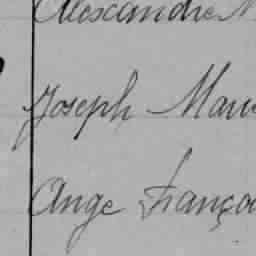 Alexandre
Joseph Marie
Ange Franço